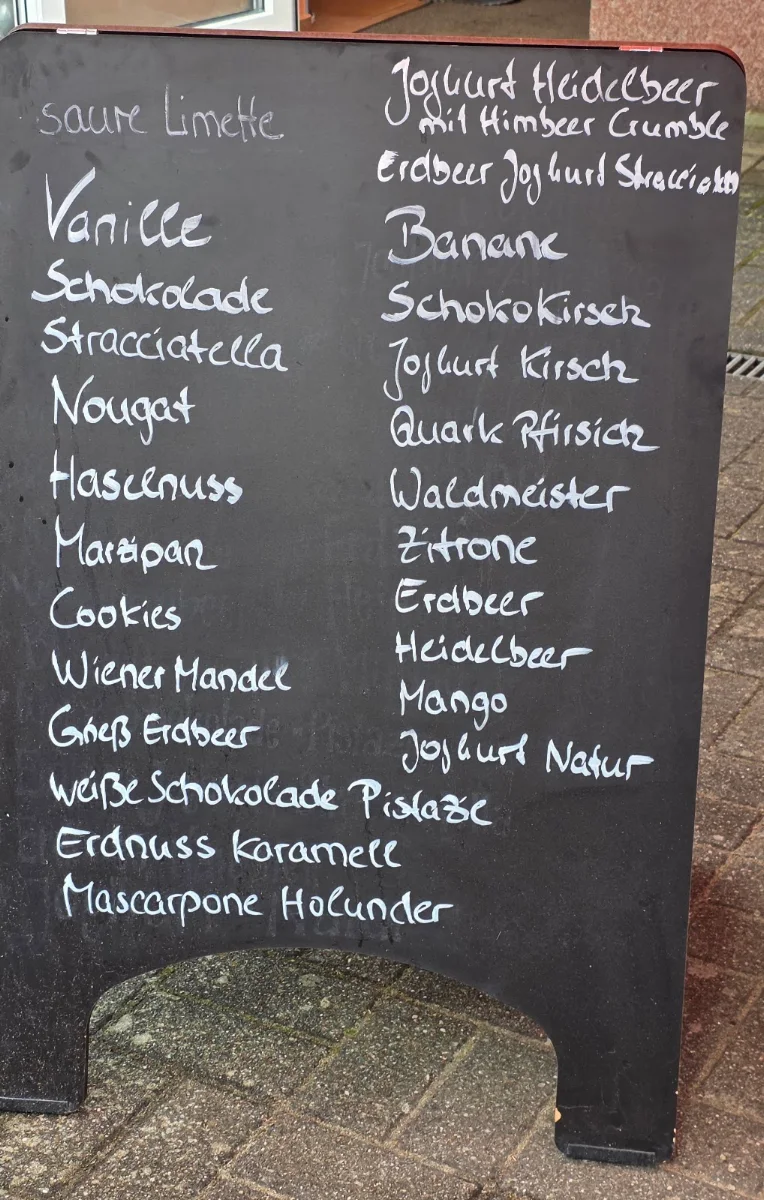 saure Limette
Vanille
Schokolade
Stracciatella
Nougat
Haselnuss
Marzipan
Cookies
Wiener Mandel
Grieß Erdbeer
weiße Schokolade Pistazie
Erdnuss Karamell
Mascarpone Holunder
Joghurt Heidelbeer
mit Himbeer Crumble
Erdbeer Joghurt Stracciatella
Banane
SchokoKirsch
Joghurt Kirsch
Quark Pfirsich
Waldmeister
Zitrone
Erdbeer
Heidelbeer
Mango
Joghurt Natur